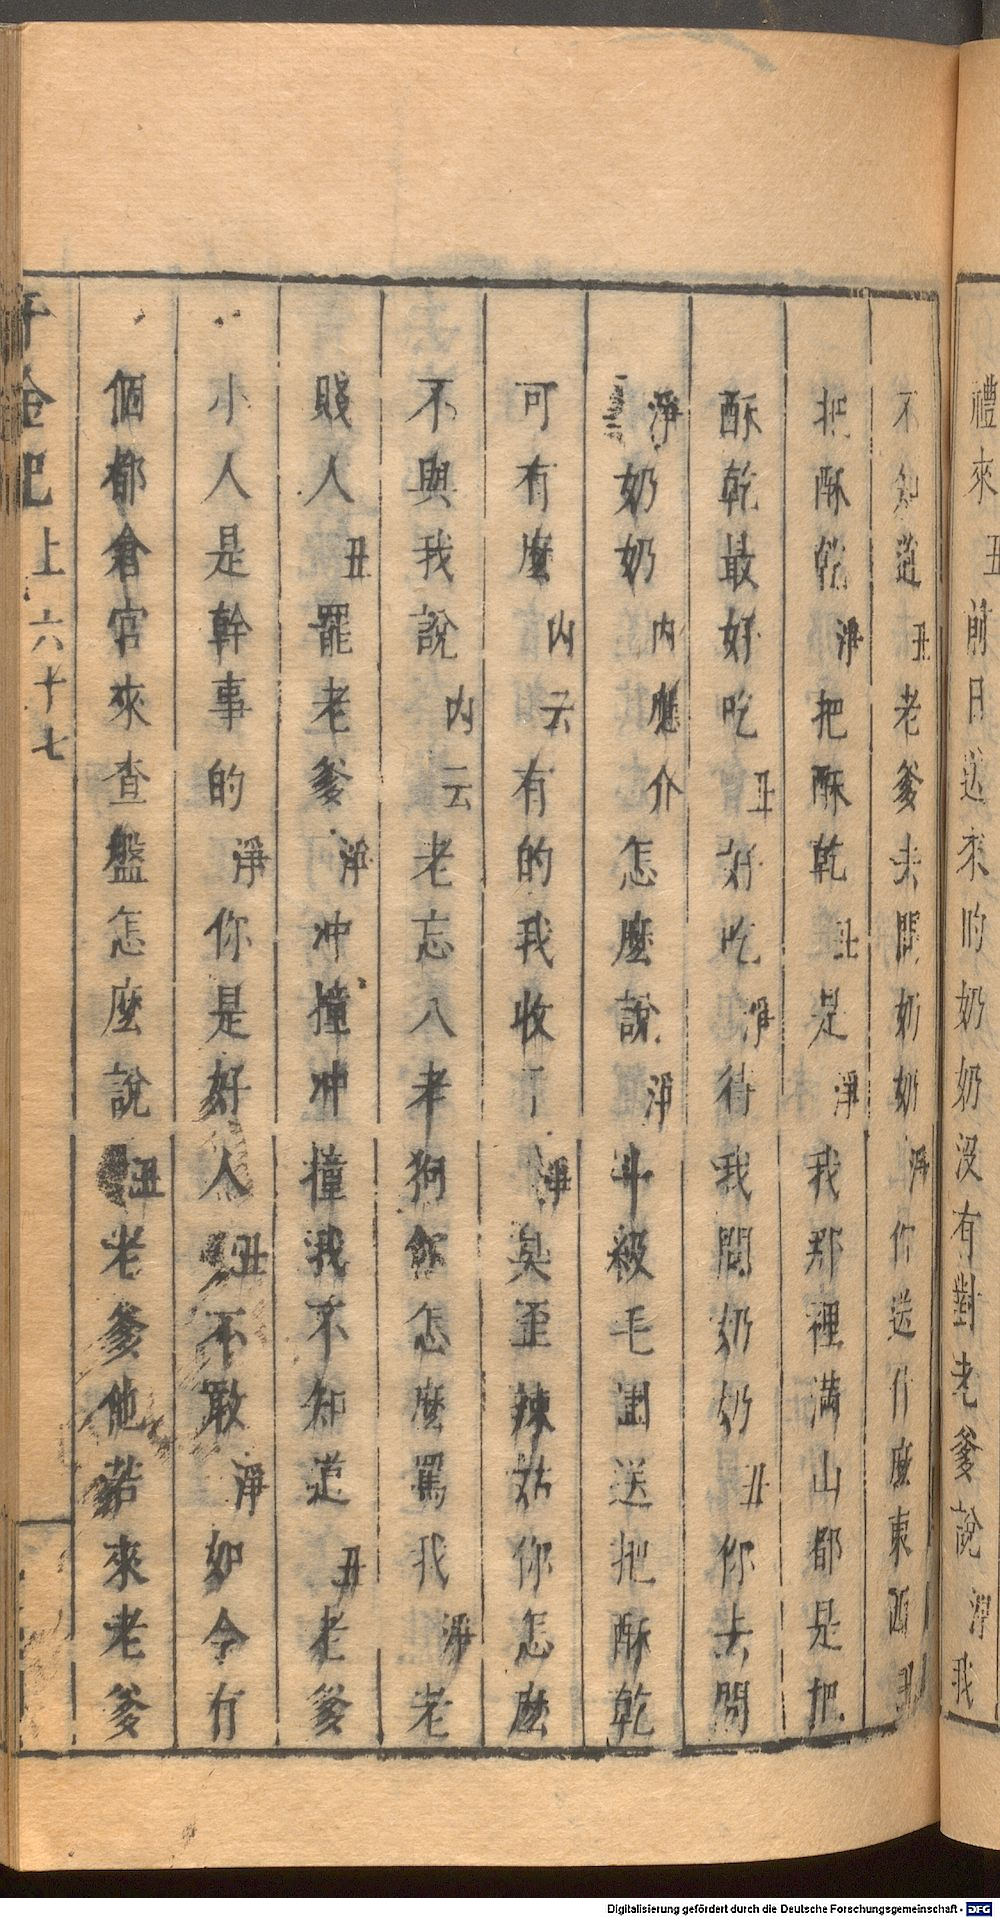 禮來丑前日送來的奶奶沒有對老爹說淨我
不知道丑老爹去問奶奶淨你送什麼東西丑
把酥乾淨把酥乾丑是淨我那裡滿山都是把
酥乾最好吃丑好吃淨待我問奶奶丑你去問
淨奶奶內應介怎麼說淨斗級毛團送把酥乾
可有麼內云有的我收了淨臭歪辣姑你怎麼
不與我說內云老忘八老狗你怎麼罵我淨老
賤人丑罷老爹淨冲撞冲撞我不知道丑老爹
小人是幹事的淨你是好人丑不敢淨如今有
個都倉官來查盤怎麼說丑老爹他若來老爹
千金記
上六十七
Digitalisierung gefördert durch die Deutsche Forschungsgemeinschaft - DFG